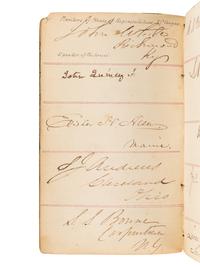 Members of House of Representatives
John White
Richmond
Ky
Speaker of the House
John Quincy A
Elisha H Allen
Maine
S J Andrews
Cleveland
Ohio
S S Bowne
Cooperstown
N Y